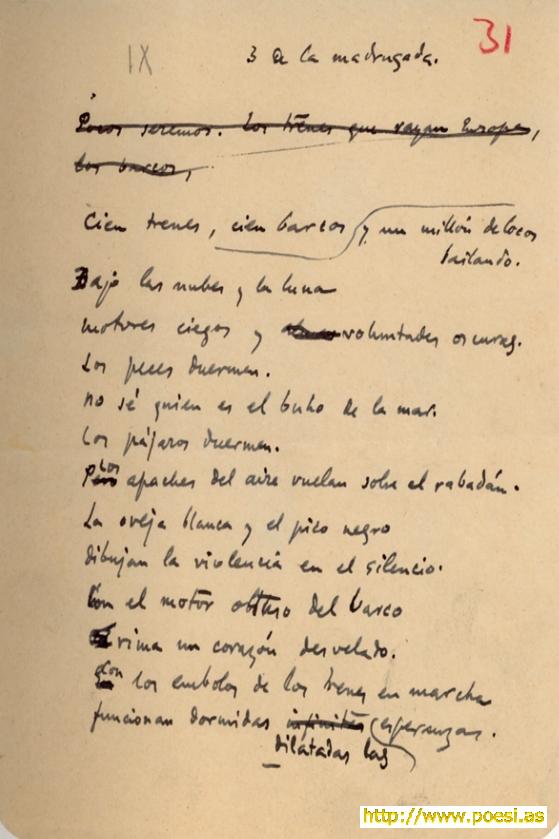 IX 3 de la madrugada. 31
Pocos seremos. Los trenes que vayan Europa,
los barcos,
Cien trenes, cien barcos y un millón de locos
bailando.
Bajo las nubes y la luna
motores ciegos y voluntades oscuras.
Los peces duermen.
no sé quien es el buho de la mar.
Los pájaros duermen.
Pero Los apaches del aire vuelan sobre el rabadán.
La oveja blanca y el pico negro
dibujan la violencia en el silencio.
Con el motor obtuso del barco
rima un corazón desvelado.
con los embolos de los trenes en marcha
funcionan dormidas infinitas esperanzas.
dilatadas las
http://www.poesi.as